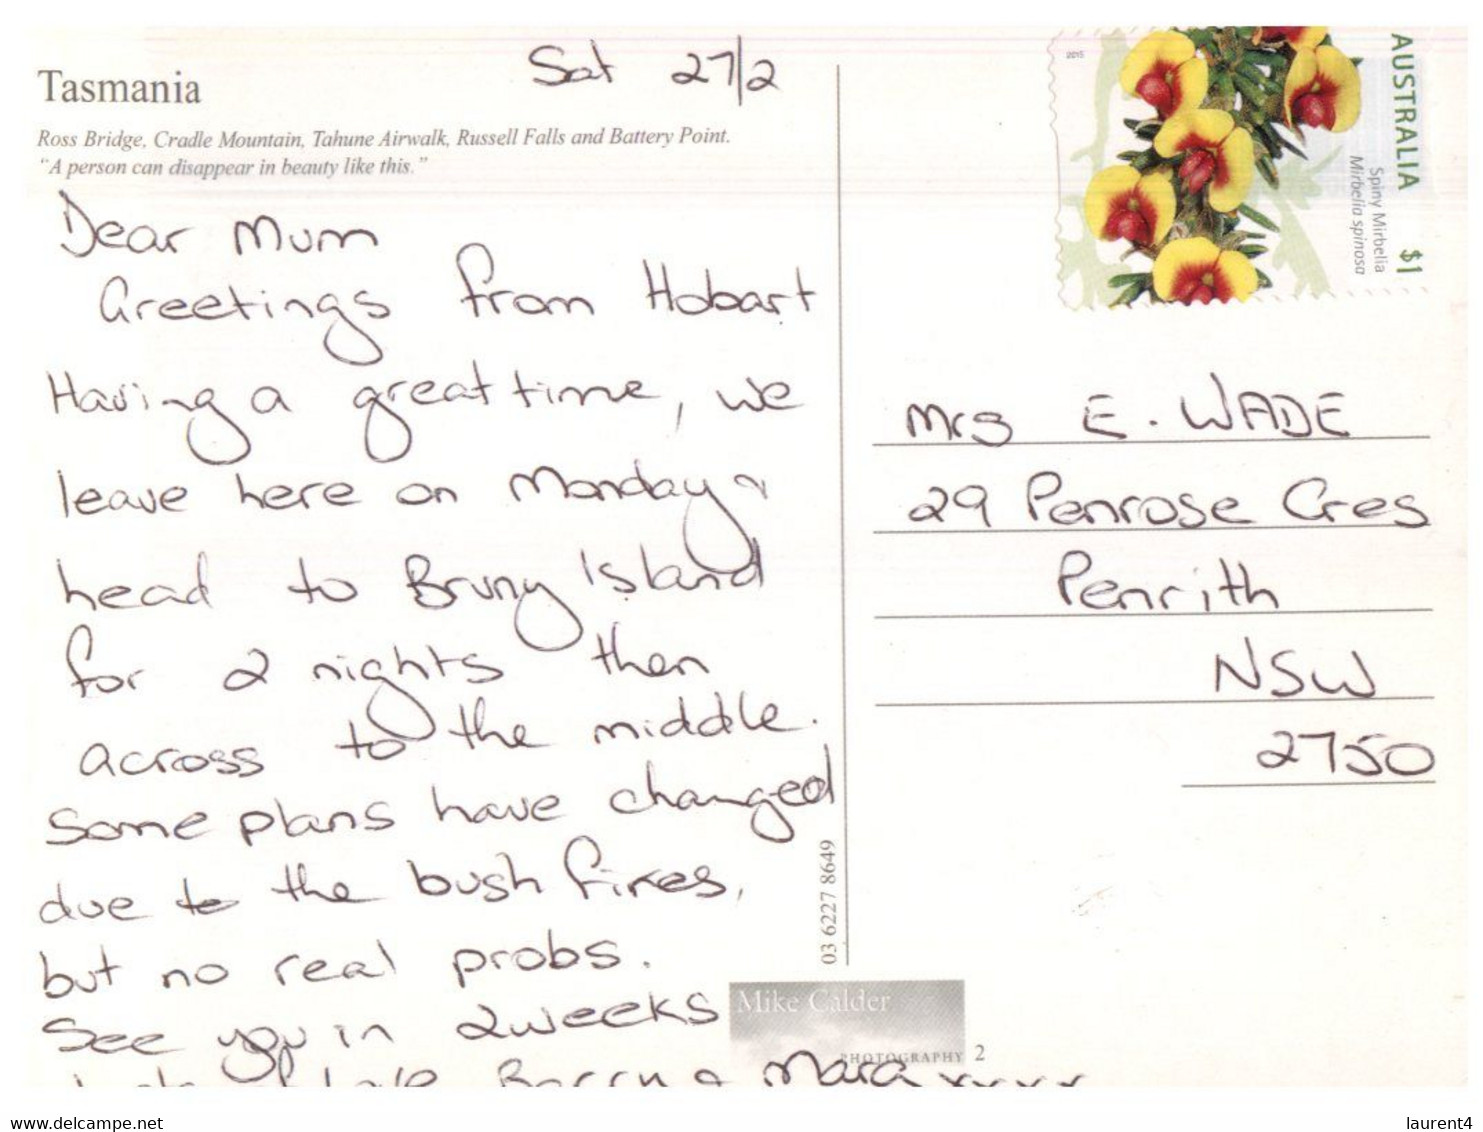 Sat 27/2
Tasmania
Ross Bridge, Cradle Mountain, Tahune Airwalk, Russell Falls and Battery Point.
"A person can disappear in beauty like this."
Dear Mum
Greetings from Hobart
Having a great time, we
leave here on Monday &
head to Bruny Island
for 2 nights then
across to the middle.
Some plans have changed
due to the bush fires,
but no real probs.
See you in 2weeks
Lots of love Barry & Mara xxxx
2015
AUSTRALIA
Spiny Mirbelia
Mirbelia spinosa
$1
Mrs E. WADE
29 Penrose Cres
Penrith
NSW
2750
03 6227 8649
Mike Calder
PHOTOGRAPHY 2
www.delcampe.net
laurent4